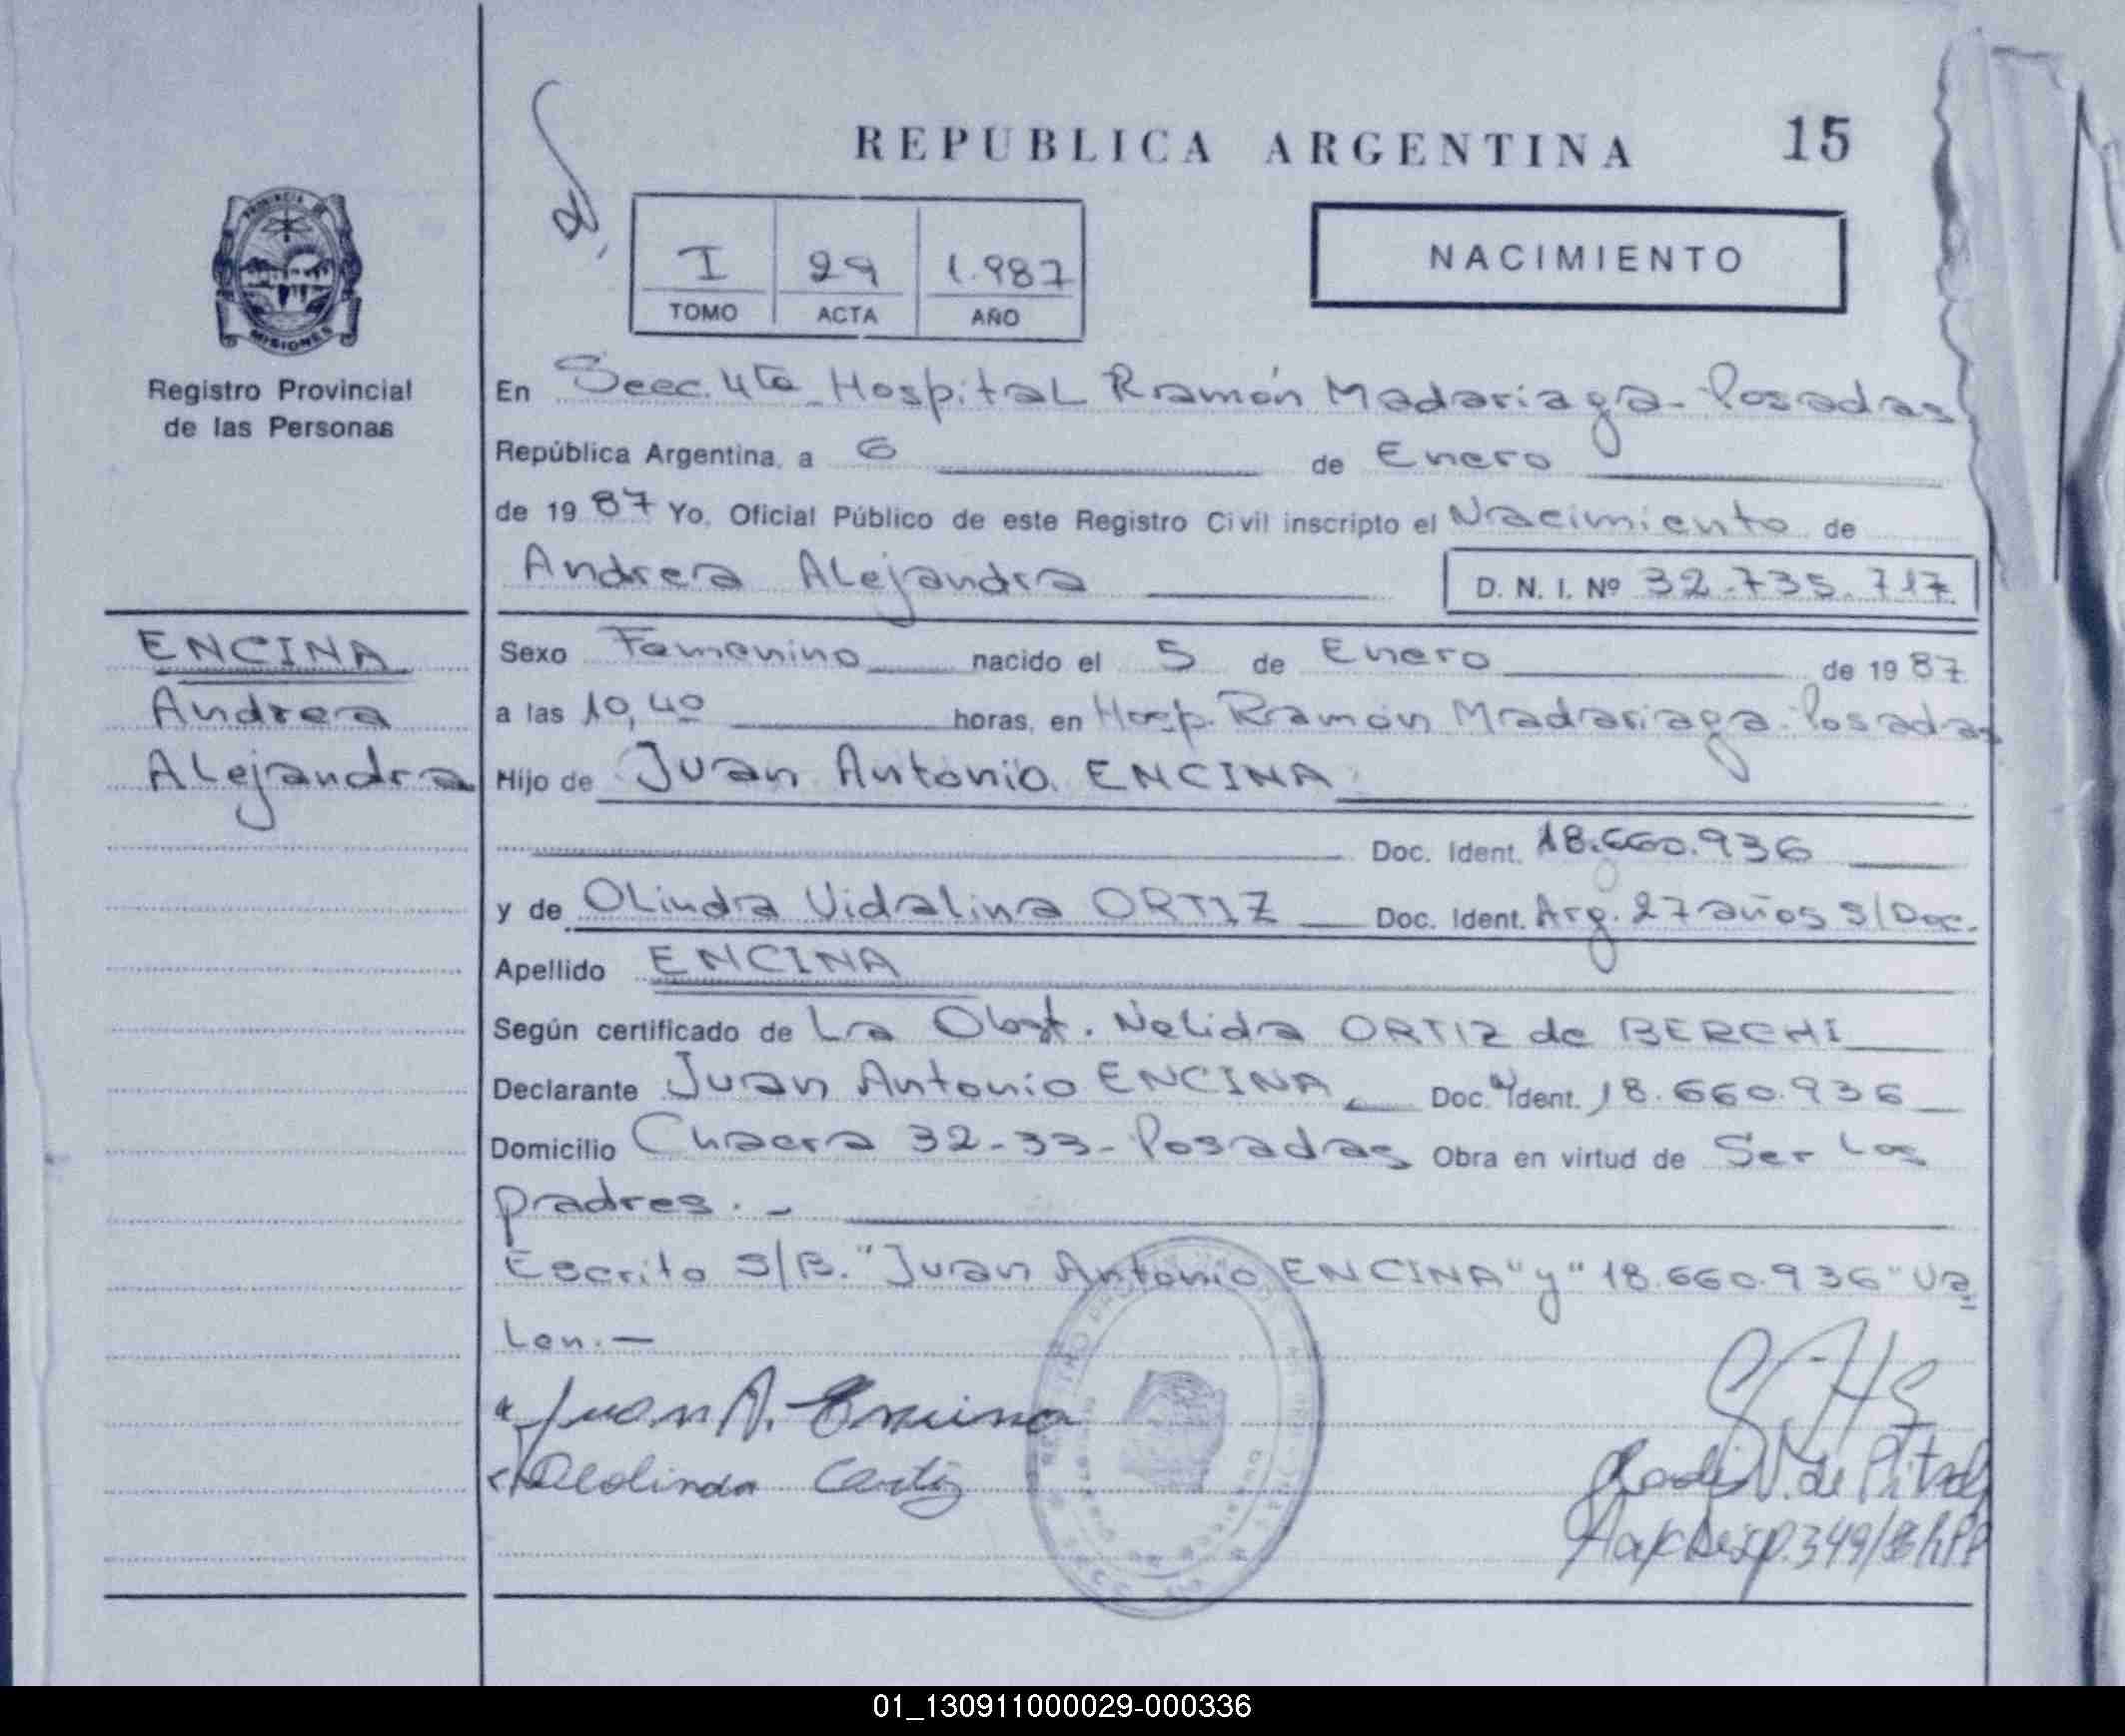 REPUBLICA ARGENTINA 15
PROVINCIA DE
MISIONES
Registro Provincial
de las Personas
I 29 1.987
TOMO ACTA AÑO
NACIMIENTO
En Secc. 4ta Hospital Ramón Madariaga - Posadas
República Argentina, a 6 de Enero
de 19 87 Yo, Oficial Público de este Registro Civil inscripto el Nacimiento de
Andrea Alejandra D. N. I. Nº 32.735.717
ENCINA
Andrea
Alejandra
Sexo Femenino nacido el 5 de Enero de 19 87
a las 10,40 horas, en Hosp. Ramón Madariaga - Posadas
Hijo de Juan Antonio ENCINA
Doc. Ident. 18.660.936
y de Olinda Vidalina ORTIZ Doc. Ident. Arg. 27 años s/Doc.
Apellido ENCINA
Según certificado de La Obst. Nelida ORTIZ de BERCHI
Declarante Juan Antonio ENCINA Doc. Ident. 18.660.936
Domicilio Chacra 32-33- Posadas Obra en virtud de Ser los
padres. -
Escrito S/B. "Juan Antonio ENCINA" y "18.660.936" Va
len. —
Juan A. Encina
01_130911000029-000336